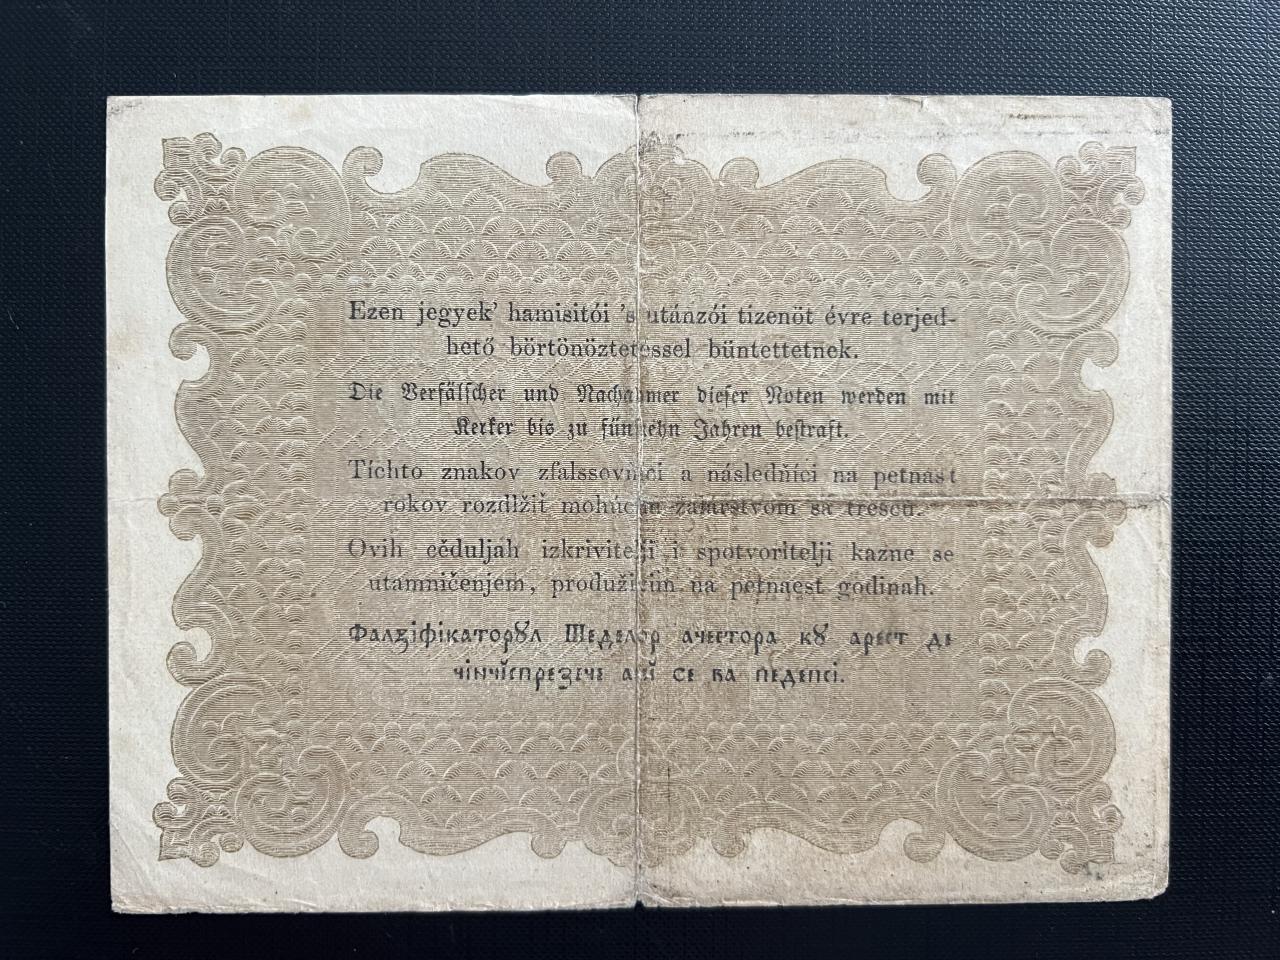 Ezen jegyek’ hamisitói ’s utánzói tizenöt évre terjed-
hető börtönöztetéssel büntettetnek.
Die Verfälscher und Nachahmer dieser Noten werden mit
Kerker bis zu fünfzehn Jahren bestraft.
Tíchto znakov zfalssovňíci a následňíci na petnást
rokov rozdlžiť mohúcím žalárstvom sa trescú.
Ovih cěduljah izkrivitelji i spotvoritelji kazne se
utamničenjem, produživim na petnaest godinah.
Фалзіфікаторꙋл Шеделор ачестора кꙋ арест де
чінчĭспрезече аĭĭ се ва педепсі.